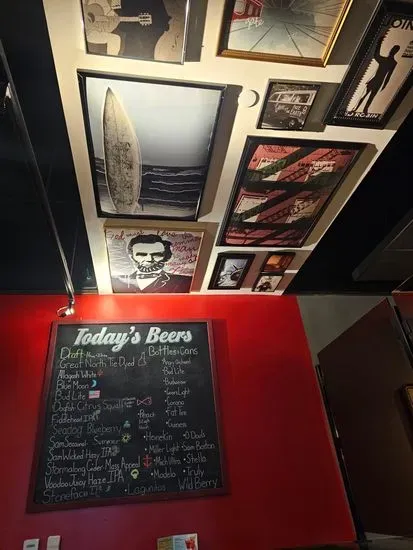 JOIN
ROBIN
Today's Beers
Draft
Great North Tie Dyed
Allagash White
Blue Moon
Bud Lite
Dogfish Citrus Squall
Fiddlehead IPA
Seadog Blueberry
Sam Seasonal Summer
Sam Wicked Hazy IPA
Stormalong Cider Mass Appeal
Voodoo Juicy Haze IPA
Stoneface IPA
Bottles & Cans
Angry Orchard
Bud Lite
Budweiser
Coors Light
Corona
Fat Tire
Guinness
• Heineken
• O'Douls
• Miller Light
• Sam Boston
• Mich Ultra
• Stella
• Modelo
• Truly
Wild Berry
• Lagunitas